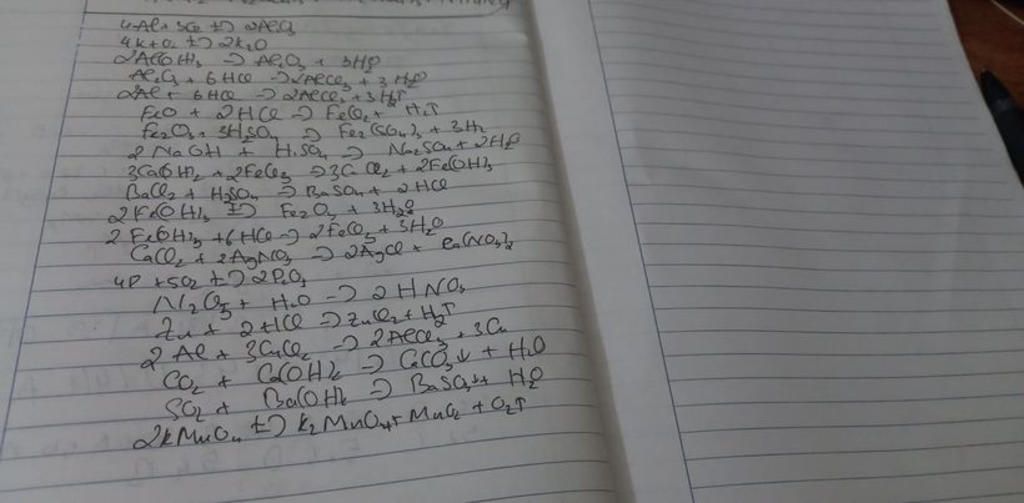 4Al + 3O2 t→ 2Al2O3
4K + O2 t→ 2K2O
2Al(OH)3 → Al2O3 + 3H2O
Al2O3 + 6HCl → 2AlCl3 + 3H2O
2Al + 6HCl → 2AlCl3 + 3H2↑
FeO + 2HCl → FeCl2 + H2↑
Fe2O3 + 3H2SO4 → Fe2(SO4)3 + 3H2
2NaOH + H2SO4 → Na2SO4 + 2H2O
3Ca(OH)2 + 2FeCl3 → 3CaCl2 + 2Fe(OH)3
BaCl2 + H2SO4 → BaSO4 + 2HCl
2Fe(OH)3 t→ Fe2O3 + 3H2O
2Fe(OH)3 + 6HCl → 2FeCl3 + 3H2O
CaCl2 + 2AgNO3 → 2AgCl + Ca(NO3)2
4P + 5O2 t→ 2P2O5
N2O5 + H2O → 2HNO3
Zn + 2HCl → ZnCl2 + H2↑
2Al + 3CuCl2 → 2AlCl3 + 3Cu
CO2 + Ca(OH)2 → CaCO3↓ + H2O
SO2 + Ba(OH)2 → BaSO3↓ + H2O
2KMnO4 t→ K2MnO4 + MnO2 + O2↑